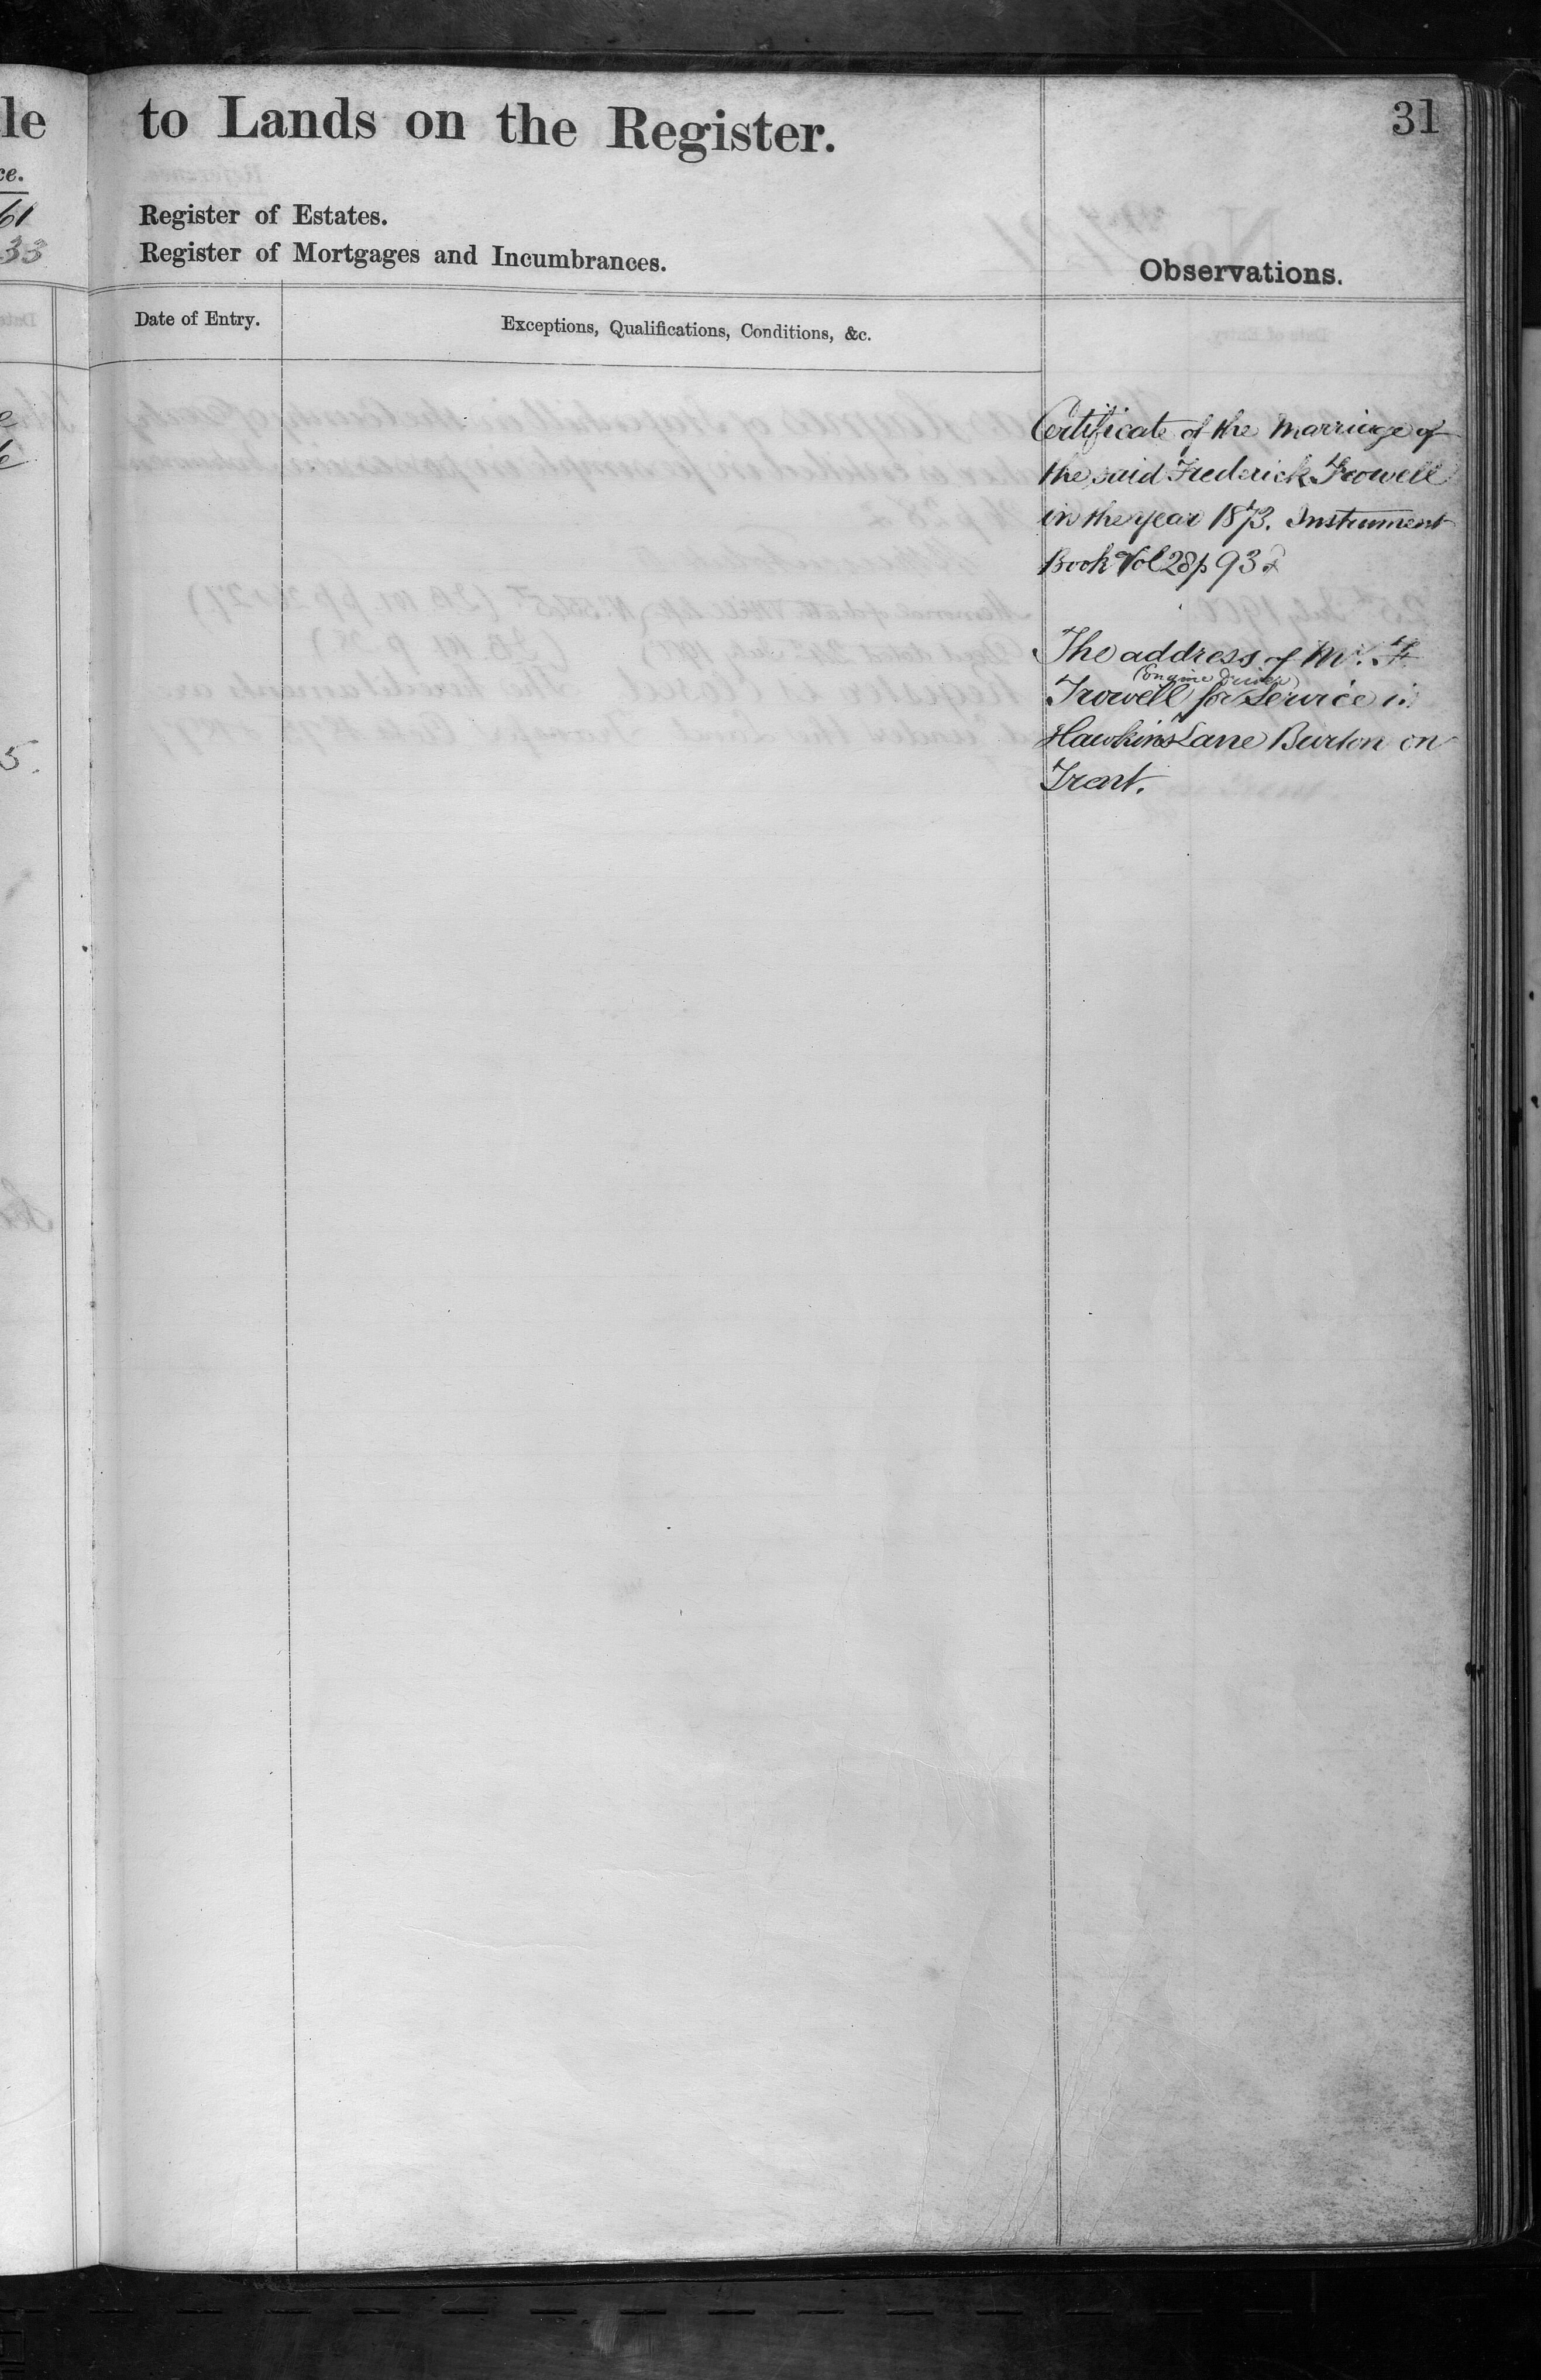 le
to Lands on the Register.
31
ce.
61
33
Register of Estates.
Register of Mortgages and Incumbrances.
Observations.
Date of Entry.
Exceptions, Qualifications, Conditions, &c.
Certificate of the Marriage of
the said Frederick Trowell
in the year 1873. Instrument
Book Vol 28 p 93
The address of Mr. F.
(Engine Driver)
Trowell for Service is
Hawkins Lane Burton on
Trent.
5.